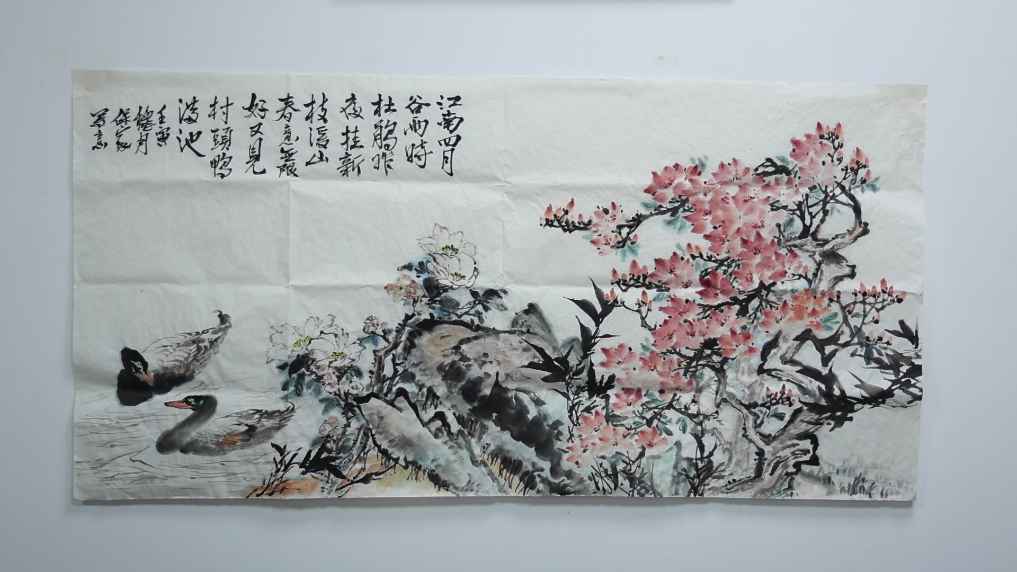 江南四月
谷雨時
杜鵑昨
夜挂新
枝溪山
春意無限
好又見
村頭鴨
滿池
壬寅
榴月
保家
寫意